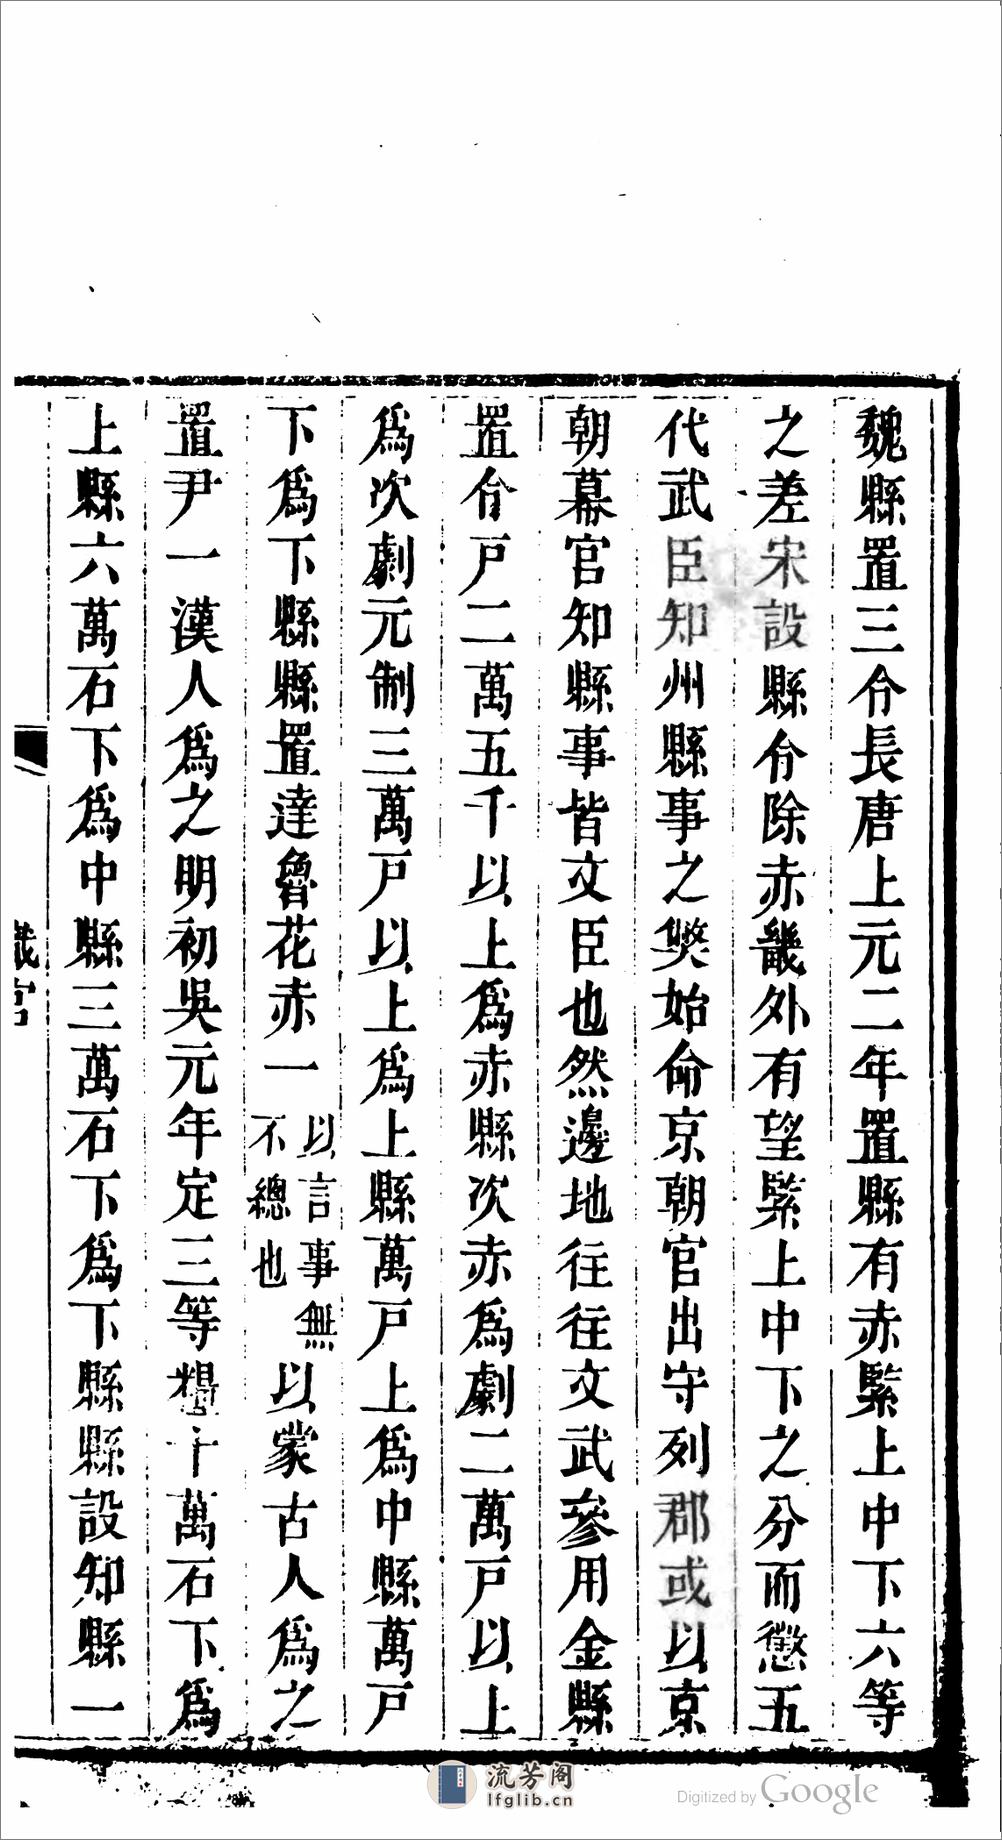 魏縣置三令長唐上元二年置縣有赤緊上中下六等
之差宋設縣令除赤畿外有望緊上中下之分而懲五
代武臣知州縣事之獘始命京朝官出守列郡或以京
朝幕官知縣事皆文臣也然邊地往往文武參用金縣
置令戸二萬五千以上爲赤縣次赤爲劇二萬戸以上
爲次劇元制三萬戸以上爲上縣萬戸上爲中縣萬戸
下爲下縣縣置達魯花赤一以言事無不總也以蒙古人爲之
置尹一漢人爲之明初吳元年定三等糧十萬石下爲
上縣六萬石下爲中縣三萬石下爲下縣縣設知縣一
職官
流芳阁
lfglib.cn
Digitized by Google